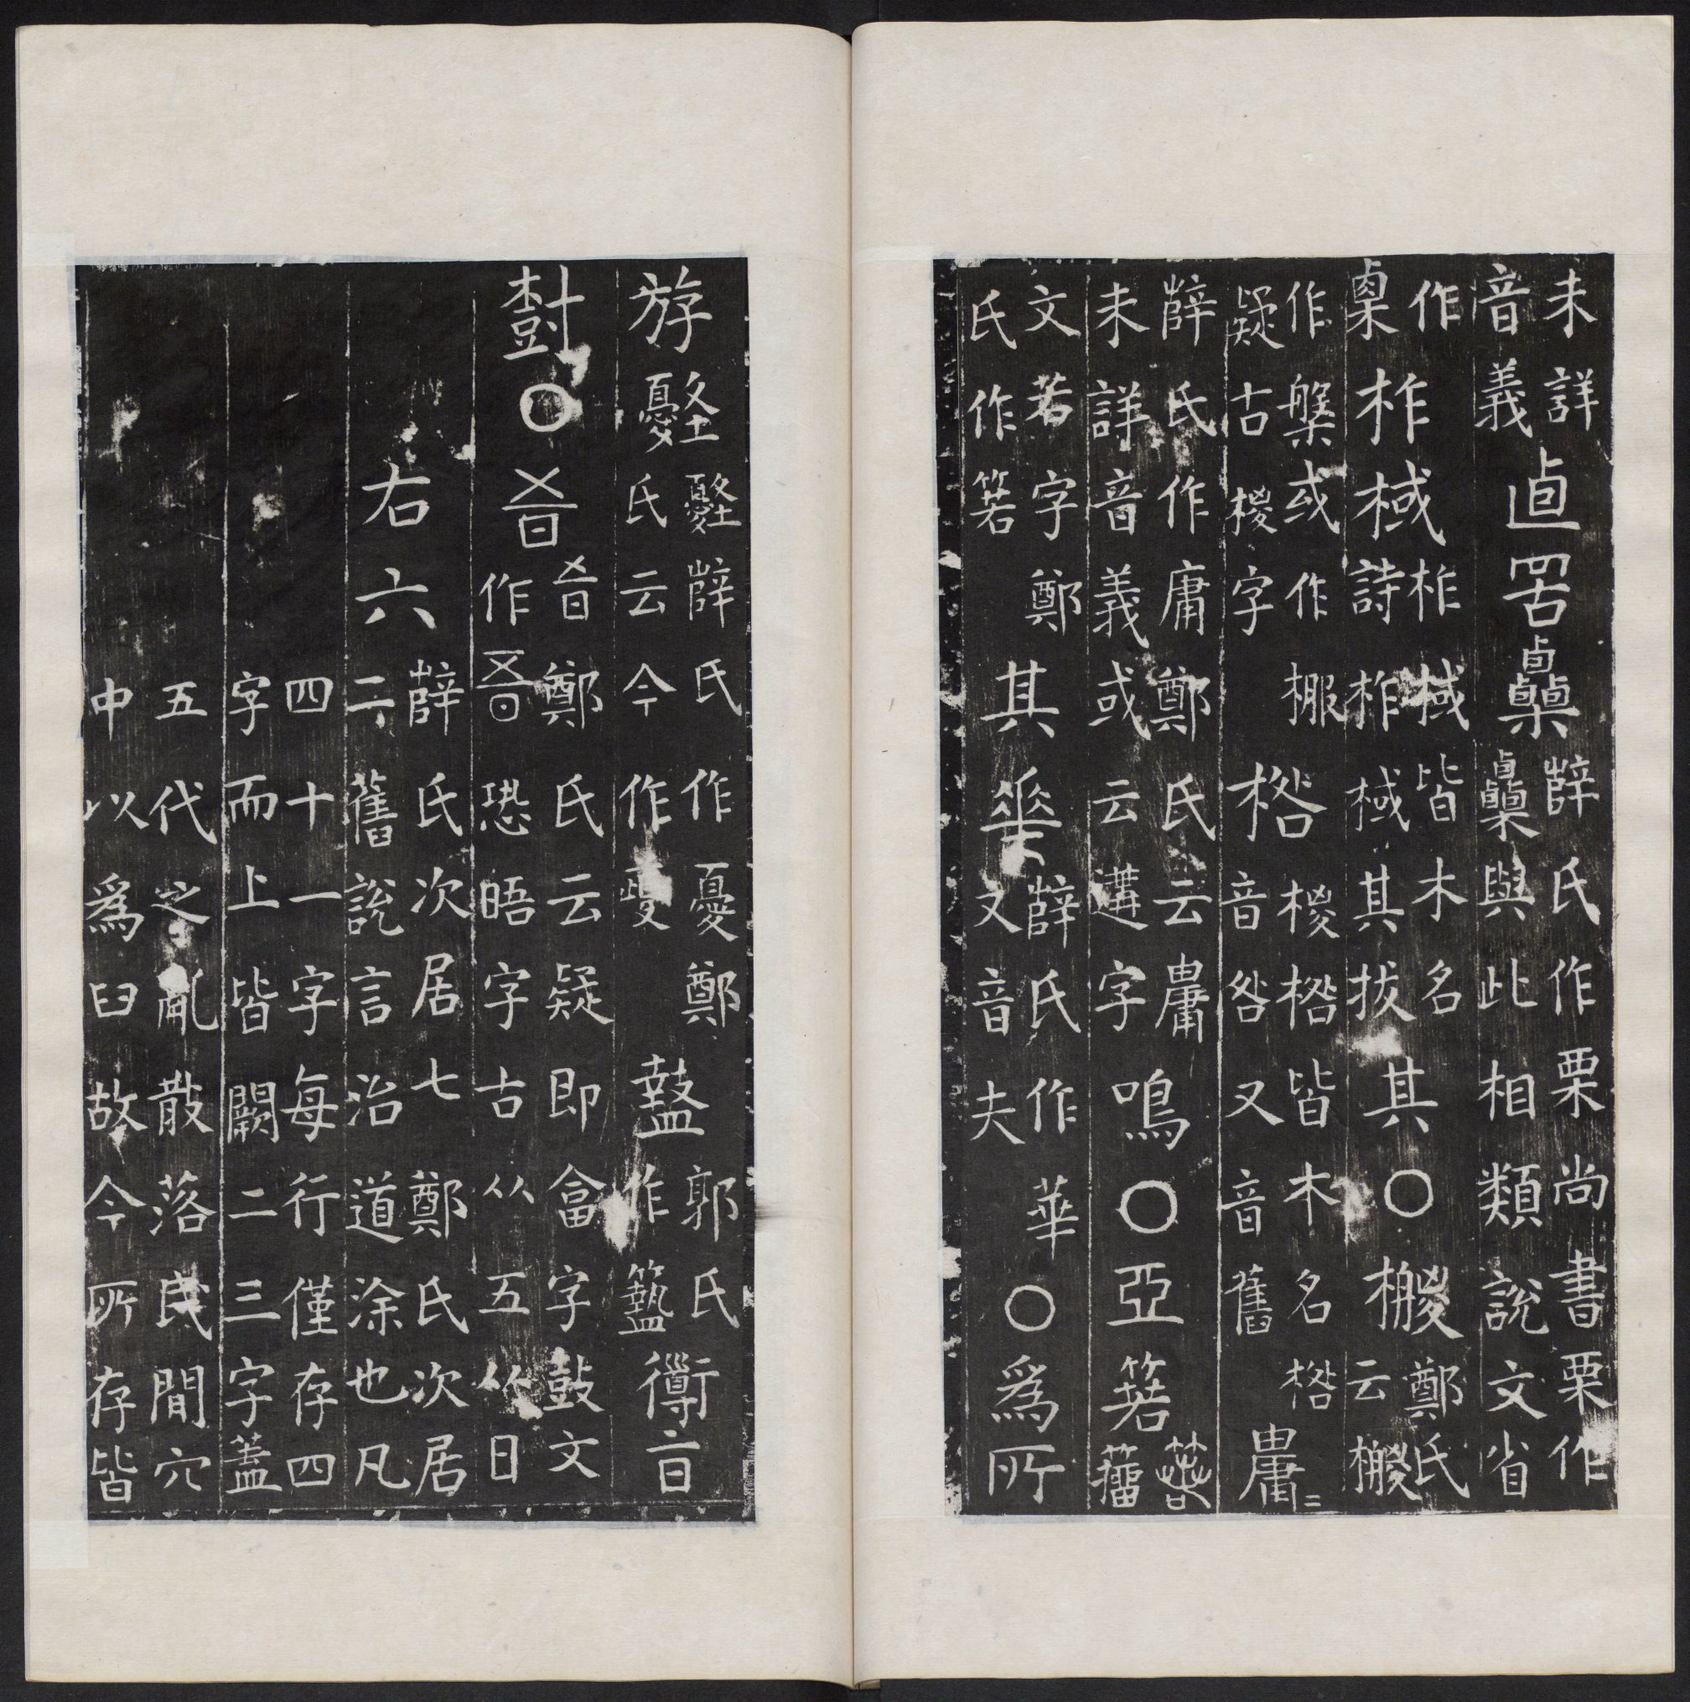 未詳
音義
逌罟
薛氏作栗尚書栗作
與此相類說文省
作
㮚
柞棫
柞棫皆木名
詩柞棫其拔
其○
鄭氏
云
作槃或作棴
疑古椶字
楁
椶楁皆木名楁
音咎又音舊
薛氏作庸鄭氏云
未詳音義或云遘字
鳴○亞箬
籀
文若字鄭
氏作箬
其華
薛氏作華
又音夫
○爲所
斿
薛氏作憂鄭
氏云今作
盩
郭氏
作
導
尌○
鄭氏云疑即畬字鼓文
作恐晤字古从五从日
右六
薛氏次居七鄭氏次居
二舊說言治道涂也凡
四十一字每行僅存四
字而上皆闕二三字蓋
五代之亂散落民間穴
中以爲臼故今所存皆